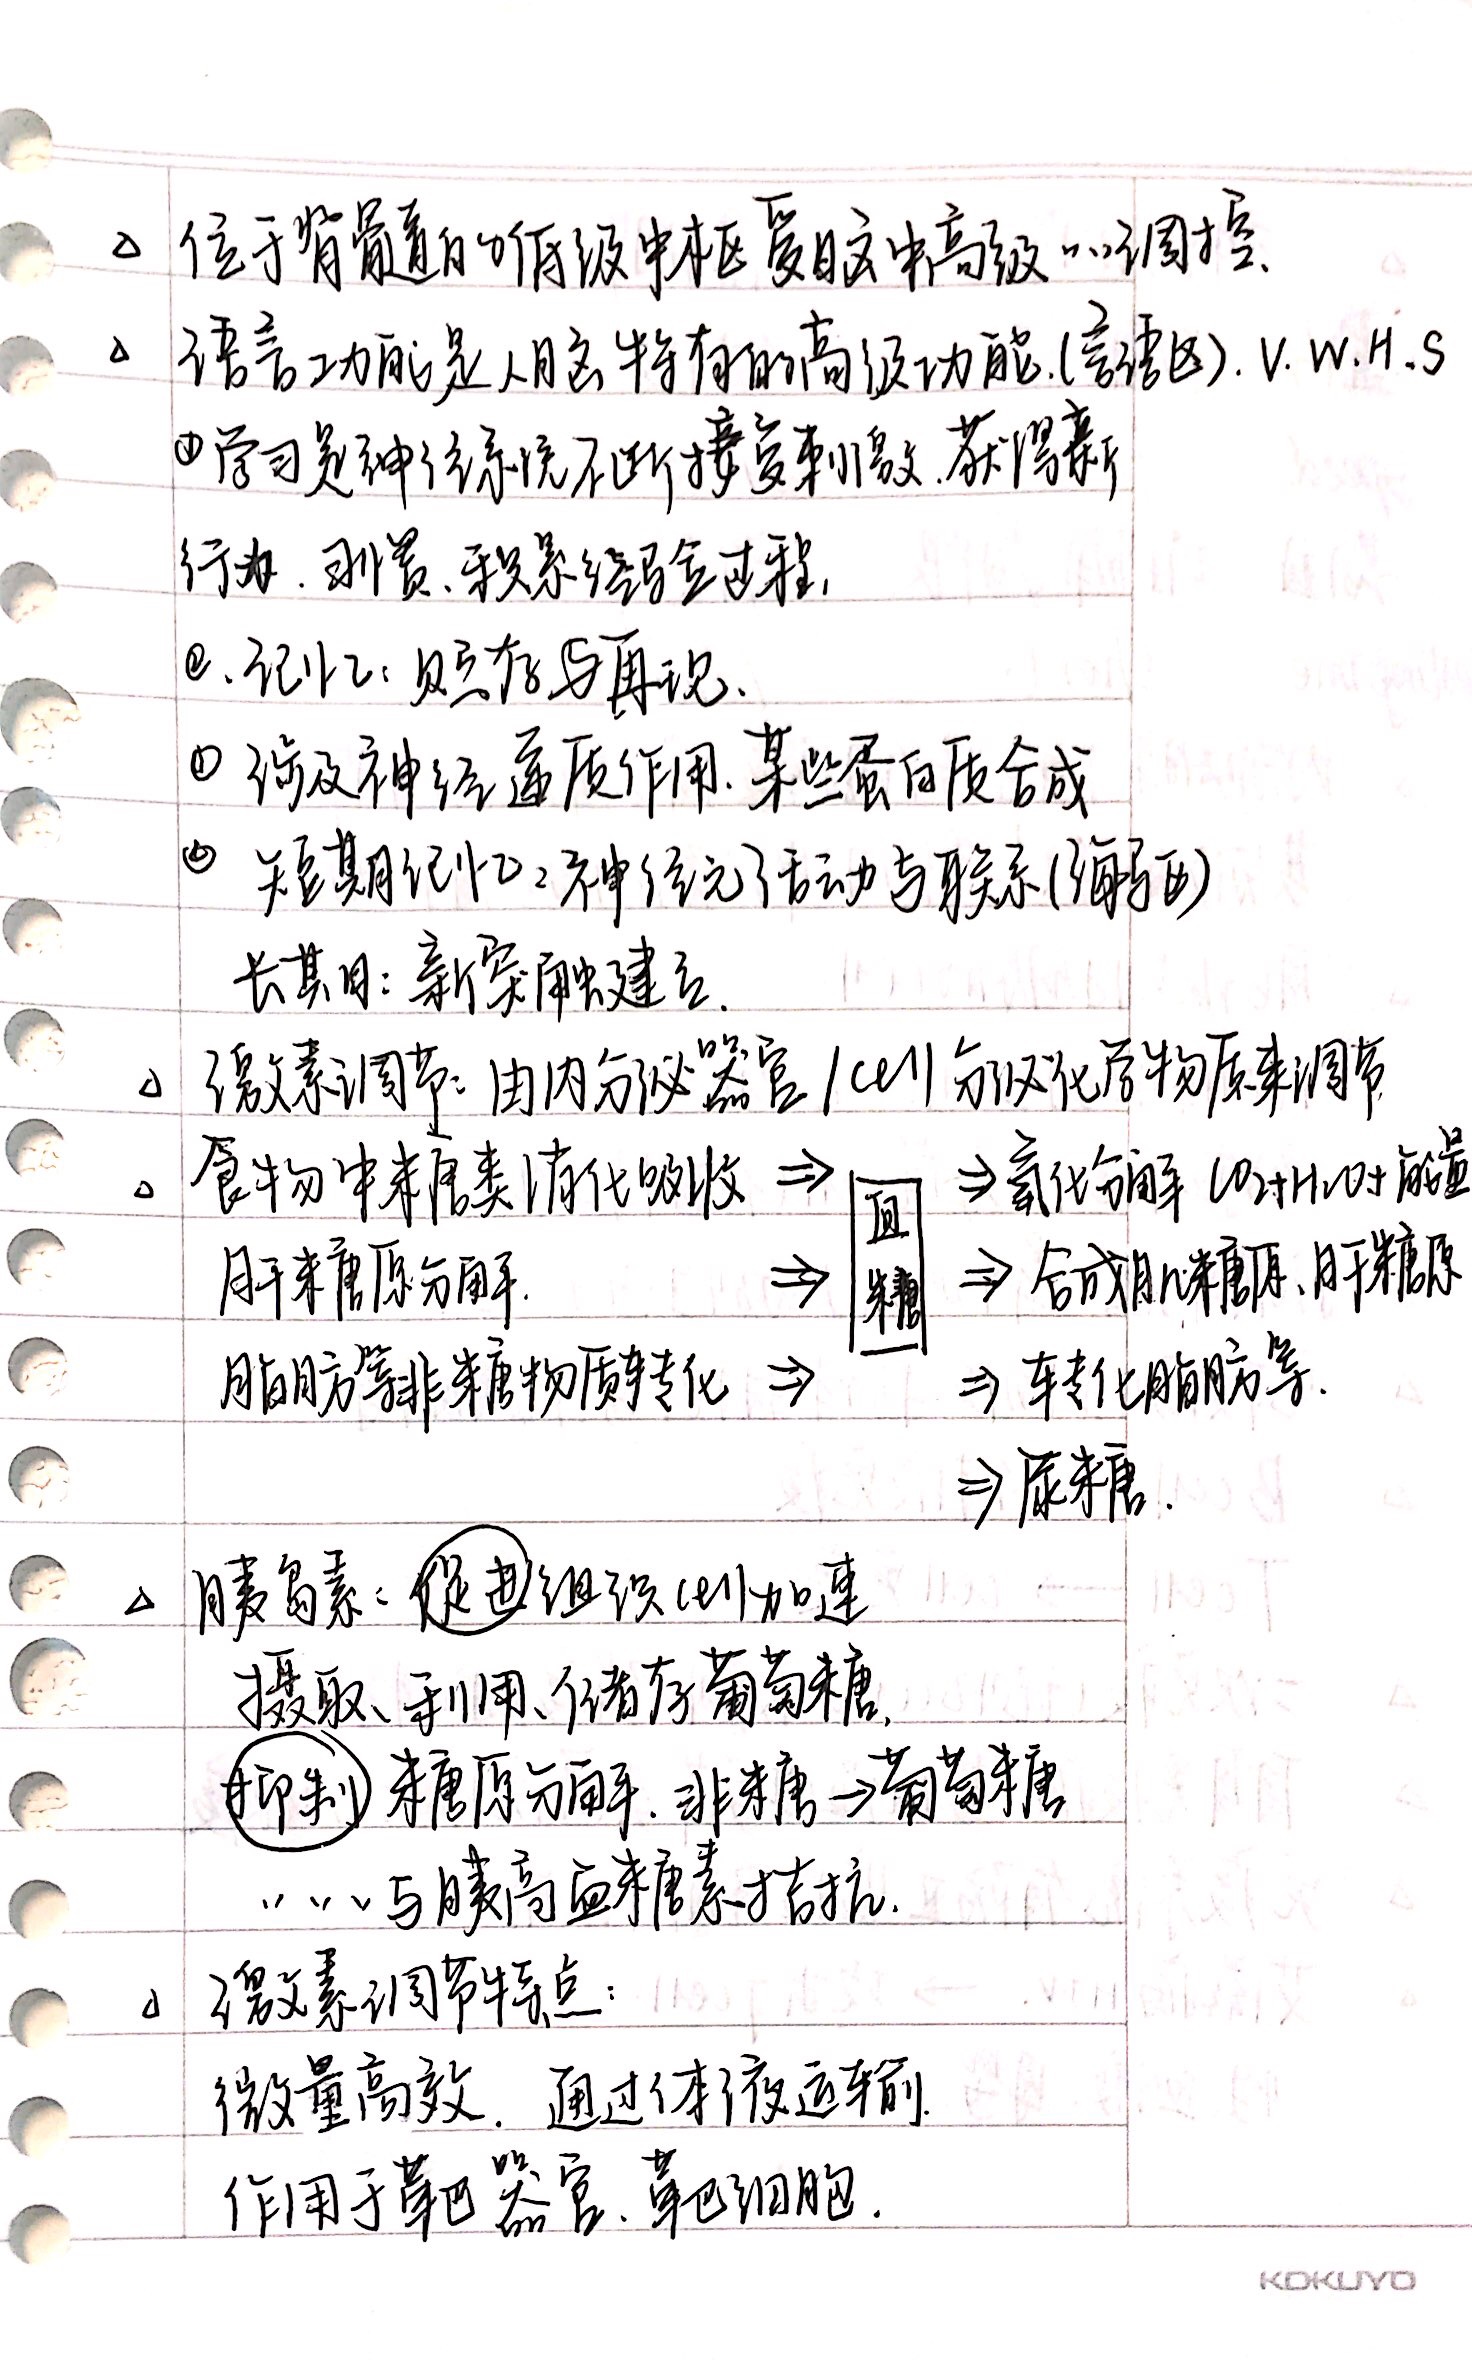 △ 位于脊髓的低级中枢受脑中高级……调控.
△ 语言功能是人脑特有的高级功能.(言语区). V. W. H. S
① 学习是神经系统不断接受刺激.获得新
行为.习惯、积累经验过程,
②. 记忆: 贮存与再现.
① 涉及神经递质作用.某些蛋白质合成
② 短期记忆:神经元活动与联系(海马区)
长期: 新突触建立.
△ 激素调节: 由内分泌器官/cell分泌化学物质来调节
△ 食物中糖类消化吸收 ⇒ 血糖 ⇒ 氧化分解 CO2+H2O+能量
肝糖原分解. ⇒ ⇒ 合成肌糖原、肝糖原
脂肪等非糖物质转化 ⇒ ⇒ 转化脂肪等.
⇒ 尿糖.
△ 胰岛素: 促进组织cell加速
摄取、利用、储存葡萄糖,
抑制糖原分解.非糖→葡萄糖
……与胰高血糖素拮抗.
△ 激素调节特点:
微量高效. 通过体液运输.
作用于靶器官、靶细胞.
KOKUYO